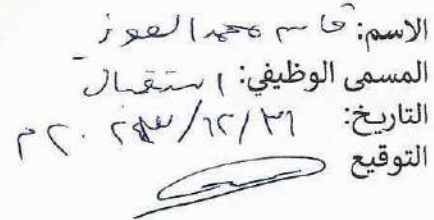 الاسم: قاسم محمد الفوز
المسمى الوظيفي: استقبال
التاريخ: ٣١/١٢/٢٠٢٣م
التوقيع